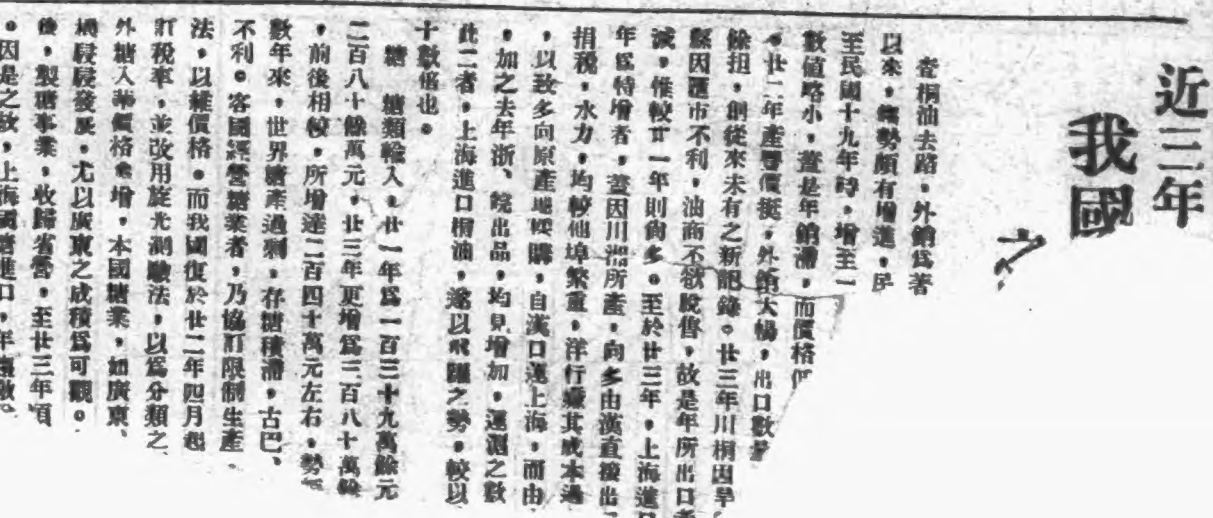 近三年
我國
之
查桐油去路，外銷爲著
以來，趨勢頗有增進，民
至民國十九年時，增至一
數值略小，蓋是年銷滯，而價格低
。廿二年產豐價挺，外銷大暢，出口數量
餘担，創從來未有之新記錄。廿三年川桐因旱
縣因匯市不利，油商不欲脫售，故是年所出口者
減，惟較廿一年則尙多。至於廿三年，上海進口
年爲特增者，蓋因川湘所產，向多由漢直接出
捐稅，水力，均較他埠繁重，洋行嫌其成本過
，以致多向原產地採購，自漢口運上海，而由
，加之去年浙、皖出品，均見增加，運滬之數
此二者，上海進口桐油，遂以飛躍之勢，較以
十數倍也。
糖　糖類輸入，廿一年爲一百三十九萬餘元
二百八十餘萬元，廿三年更增爲三百八十萬餘
，前後相較，所增達二百四十萬元左右，勢
數年來，世界糖產過剩，存糖積滯，古巴、
不利。各國經營糖業者，乃協訂限制生產
法，以維價格。而我國復於廿二年四月起
訂稅率，並改用旋光測驗法，以爲分類之
外糖入華價格。增，本國糖業，如廣東、
視駸駸發展。尤以廣東之成積爲可觀。
後，製糖事業，收歸省營，至廿三年頃
。因是之故，上海國糖進口，年